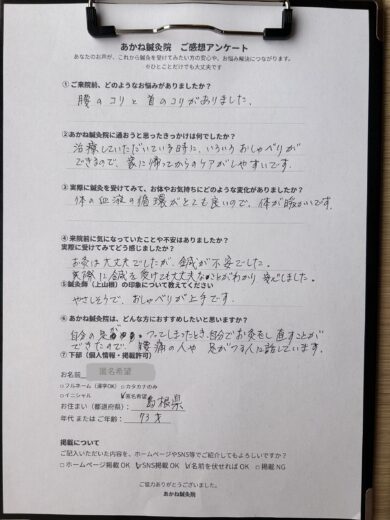 あかね鍼灸院 ご感想アンケート
あなたのお声が、これから鍼灸を受けてみたい方の安心や、お悩み解決につながります。
※ひとことだけでも大丈夫です
① ご来院前、どのようなお悩みがありましたか?
腰のコリと首のコリがありました。
②あかね鍼灸院に通おうと思ったきっかけは何でしたか?
治療していただいている時に、いろいろおしゃべりが
できるので、家に帰ってからのケアがしやすいです。
③ 実際に鍼灸を受けてみて、お体やお気持ちにどのような変化がありましたか?
体の血液の循環がとても良いので、体が暖かいです。
④ 来院前に気になっていたことや不安はありましたか?
実際に受けてみてどう感じましたか?
お灸は大丈夫でしたが、鍼が不安でした。
実際に鍼を受けても大丈夫なことがわかり安心しました。
⑤鍼灸師(上山根)の印象について教えてください
やさしそうで、おしゃべりが上手です。
⑥ あかね鍼灸院は、どんな方におすすめしたいと思いますか?
自分の足が つってしまったとき、自分でお灸をし直すことが
できたので、腰痛の人や 足がつる人に話しています。
⑦ 下部(個人情報・掲載許可)
お名前 匿名希望
□フルネーム(漢字OK) □カタカナのみ
□イニシャル ☑匿名希望
お住まい(都道府県): 島根県
年代 または ご年齢: 73才
掲載について
ご記入いただいた内容を、ホームページやSNS等でご紹介してもよろしいですか?
□ ホームページ掲載 OK ☑SNS掲載 OK ☑名前を伏せれば OK □ 掲載 NG
ご協力ありがとうございました。
あかね鍼灸院